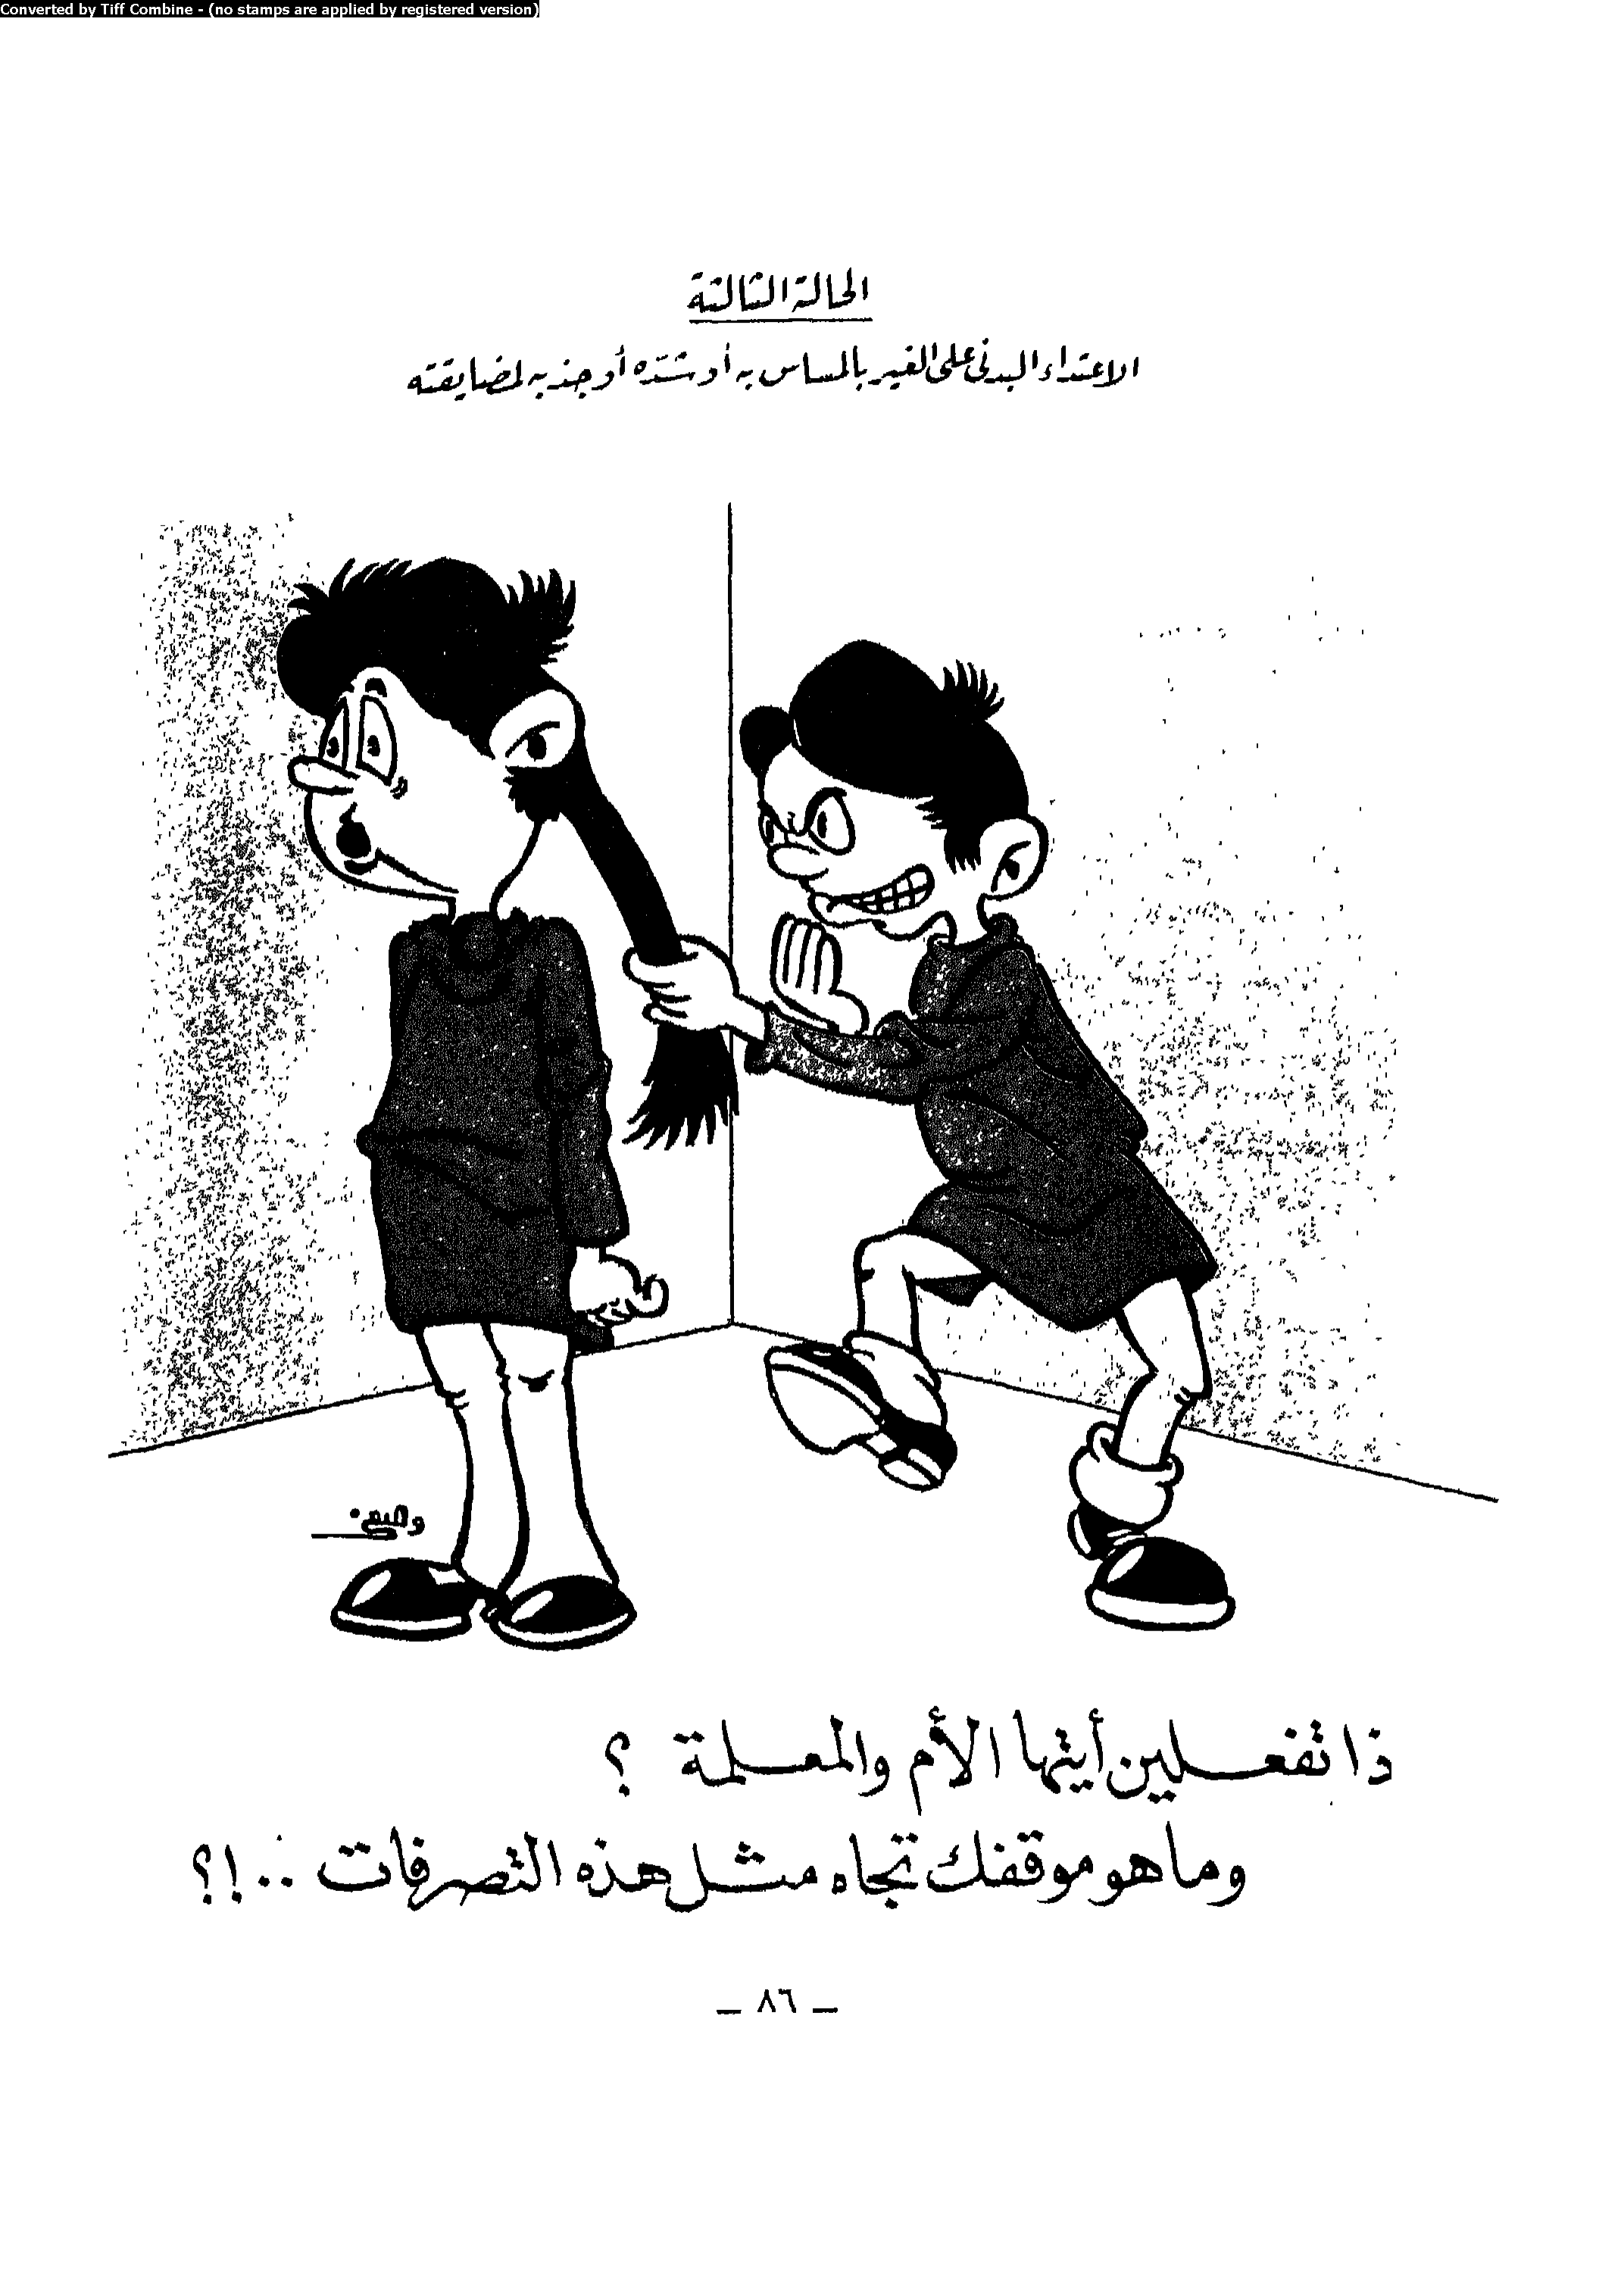 Converted by Tiff Combine - (no stamps are applied by registered version)
الحالة الثالثة
الاعتداء البدنى على الغير بالمساس به أو شدّه أو جذبه لمضايقته
ذا تفعلين أيتها الأم والمعلمة ؟
وما هو موقفك تجاه مثل هذه التصرفات ..!؟
_ ٨٦ _